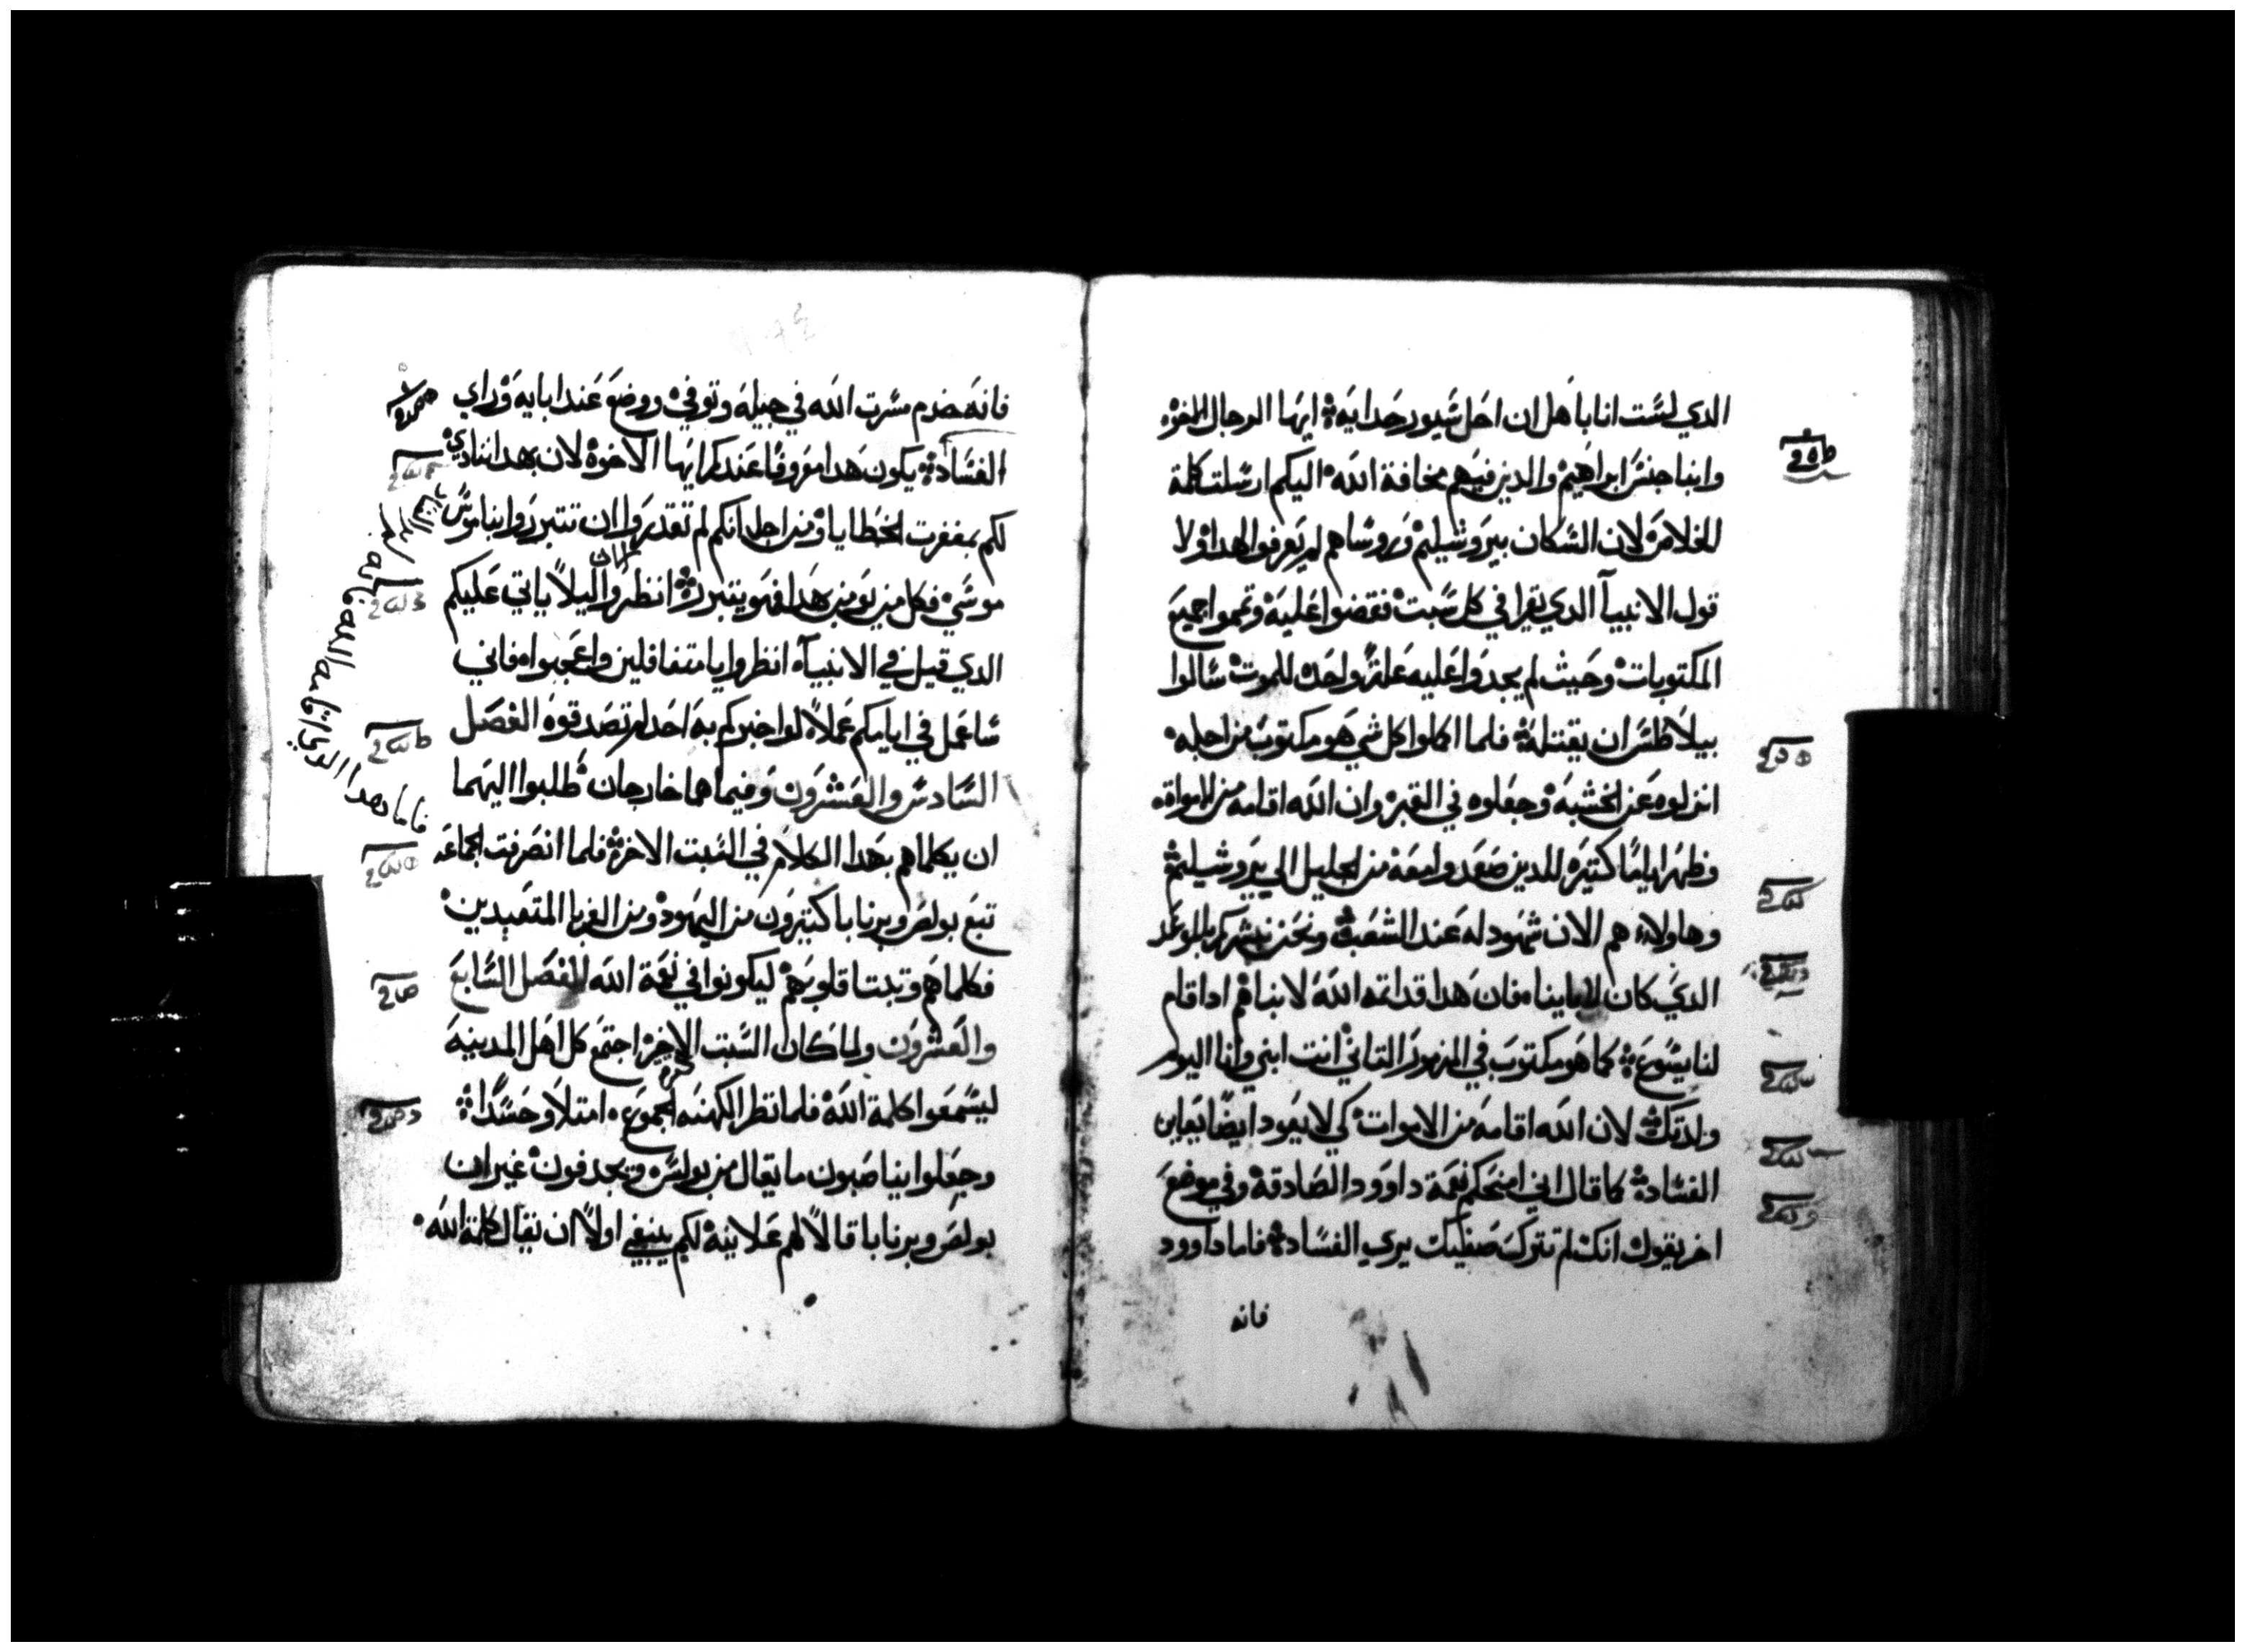 الدي لست انا باهل ان احل سيور حدايه ايها الرجال الاخوه
وابنا جنس ابراهيم والدين فيهم مخافة الله اليكم ارسلت كلمة
الخلاص لان السكان بيروشليم وروساهم لم يعرفوا هدا ولا
قول الانبيآ الدي يقرا في كل سبت فقضوا عليه وتمموا جميع
المكتوبات وحيث لم يجدوا عليه علة واحده للموت سالوا
بيلاطس ان يقتله فلما اكملوا كل شي هو مكتوب من اجله
انزلوه عن الخشبه وجعلوه في القبر وان الله اقامه من الاموات
وظهر اياما كتيره للدين صعدوا معه من الجليل الي يروشيليم
وهاولاء هم الان شهود له عند الشعب ونحن نبشركم بالوعد
الدي كان لاباينا فان هدا قد اتمه الله لابناهم ادا قام
لنا يسوع كما هو مكتوب في المزمور التاني انت ابني وانا اليوم
ولدتك لان الله اقامه من الاموات كي لا يعود ايضا يعاين
الفساد كما قال اني امنحكم نعمة داوود الصادقة وفي موضع
اخر يقول انك لم تترك صفيك يري الفساد فاما داوود
فانه
فانه خدم مسرت الله في جيله وتوفي ووضع عند ابايه وراي
الفساد يكون هدا معروفا عندكم ايها الاخوة لان بهدا ننادي
لكم بمغفرت الخطايا ومن اجل انكم لم تقدروا ان تتبرروا بناموس
موسي فكل من يومن بهدا فهو يتبرر انظروا ليلا ياتي عليكم
الدي قيل في الانبيآ انظروا يا متغافلين واعجبوا فاني
ساعمل في ايامكم عملا لو اخبركم به احد لم تصدقوه الفصل
السادس والعشرون وفيما هما خارجان طلبوا اليهما
ان يكلماهم بهدا الكلام في السبت الاخر فلما انصرفت الجماعه
تبع بولص وبرنابا كتيرون من اليهود ومن الغربا المتعبدين
فكلماهم وتبتا قلوبهم ليكونوا في نعمة الله الفصل السابع
والعشرون ولما كان السبت الاخر اجتمع كل اهل المدينه
ليسمعوا كلمة الله فلما نظر الكهنه الجموع امتلاو حسدا
وجعلوا يناصبون ما يقال من بولس ويجدفون غير ان
بولص وبرنابا قالا لهم علانية لكم ينبغي اولا ان تقال كلمة الله
فاما هدا الدي اقامه الله فانه